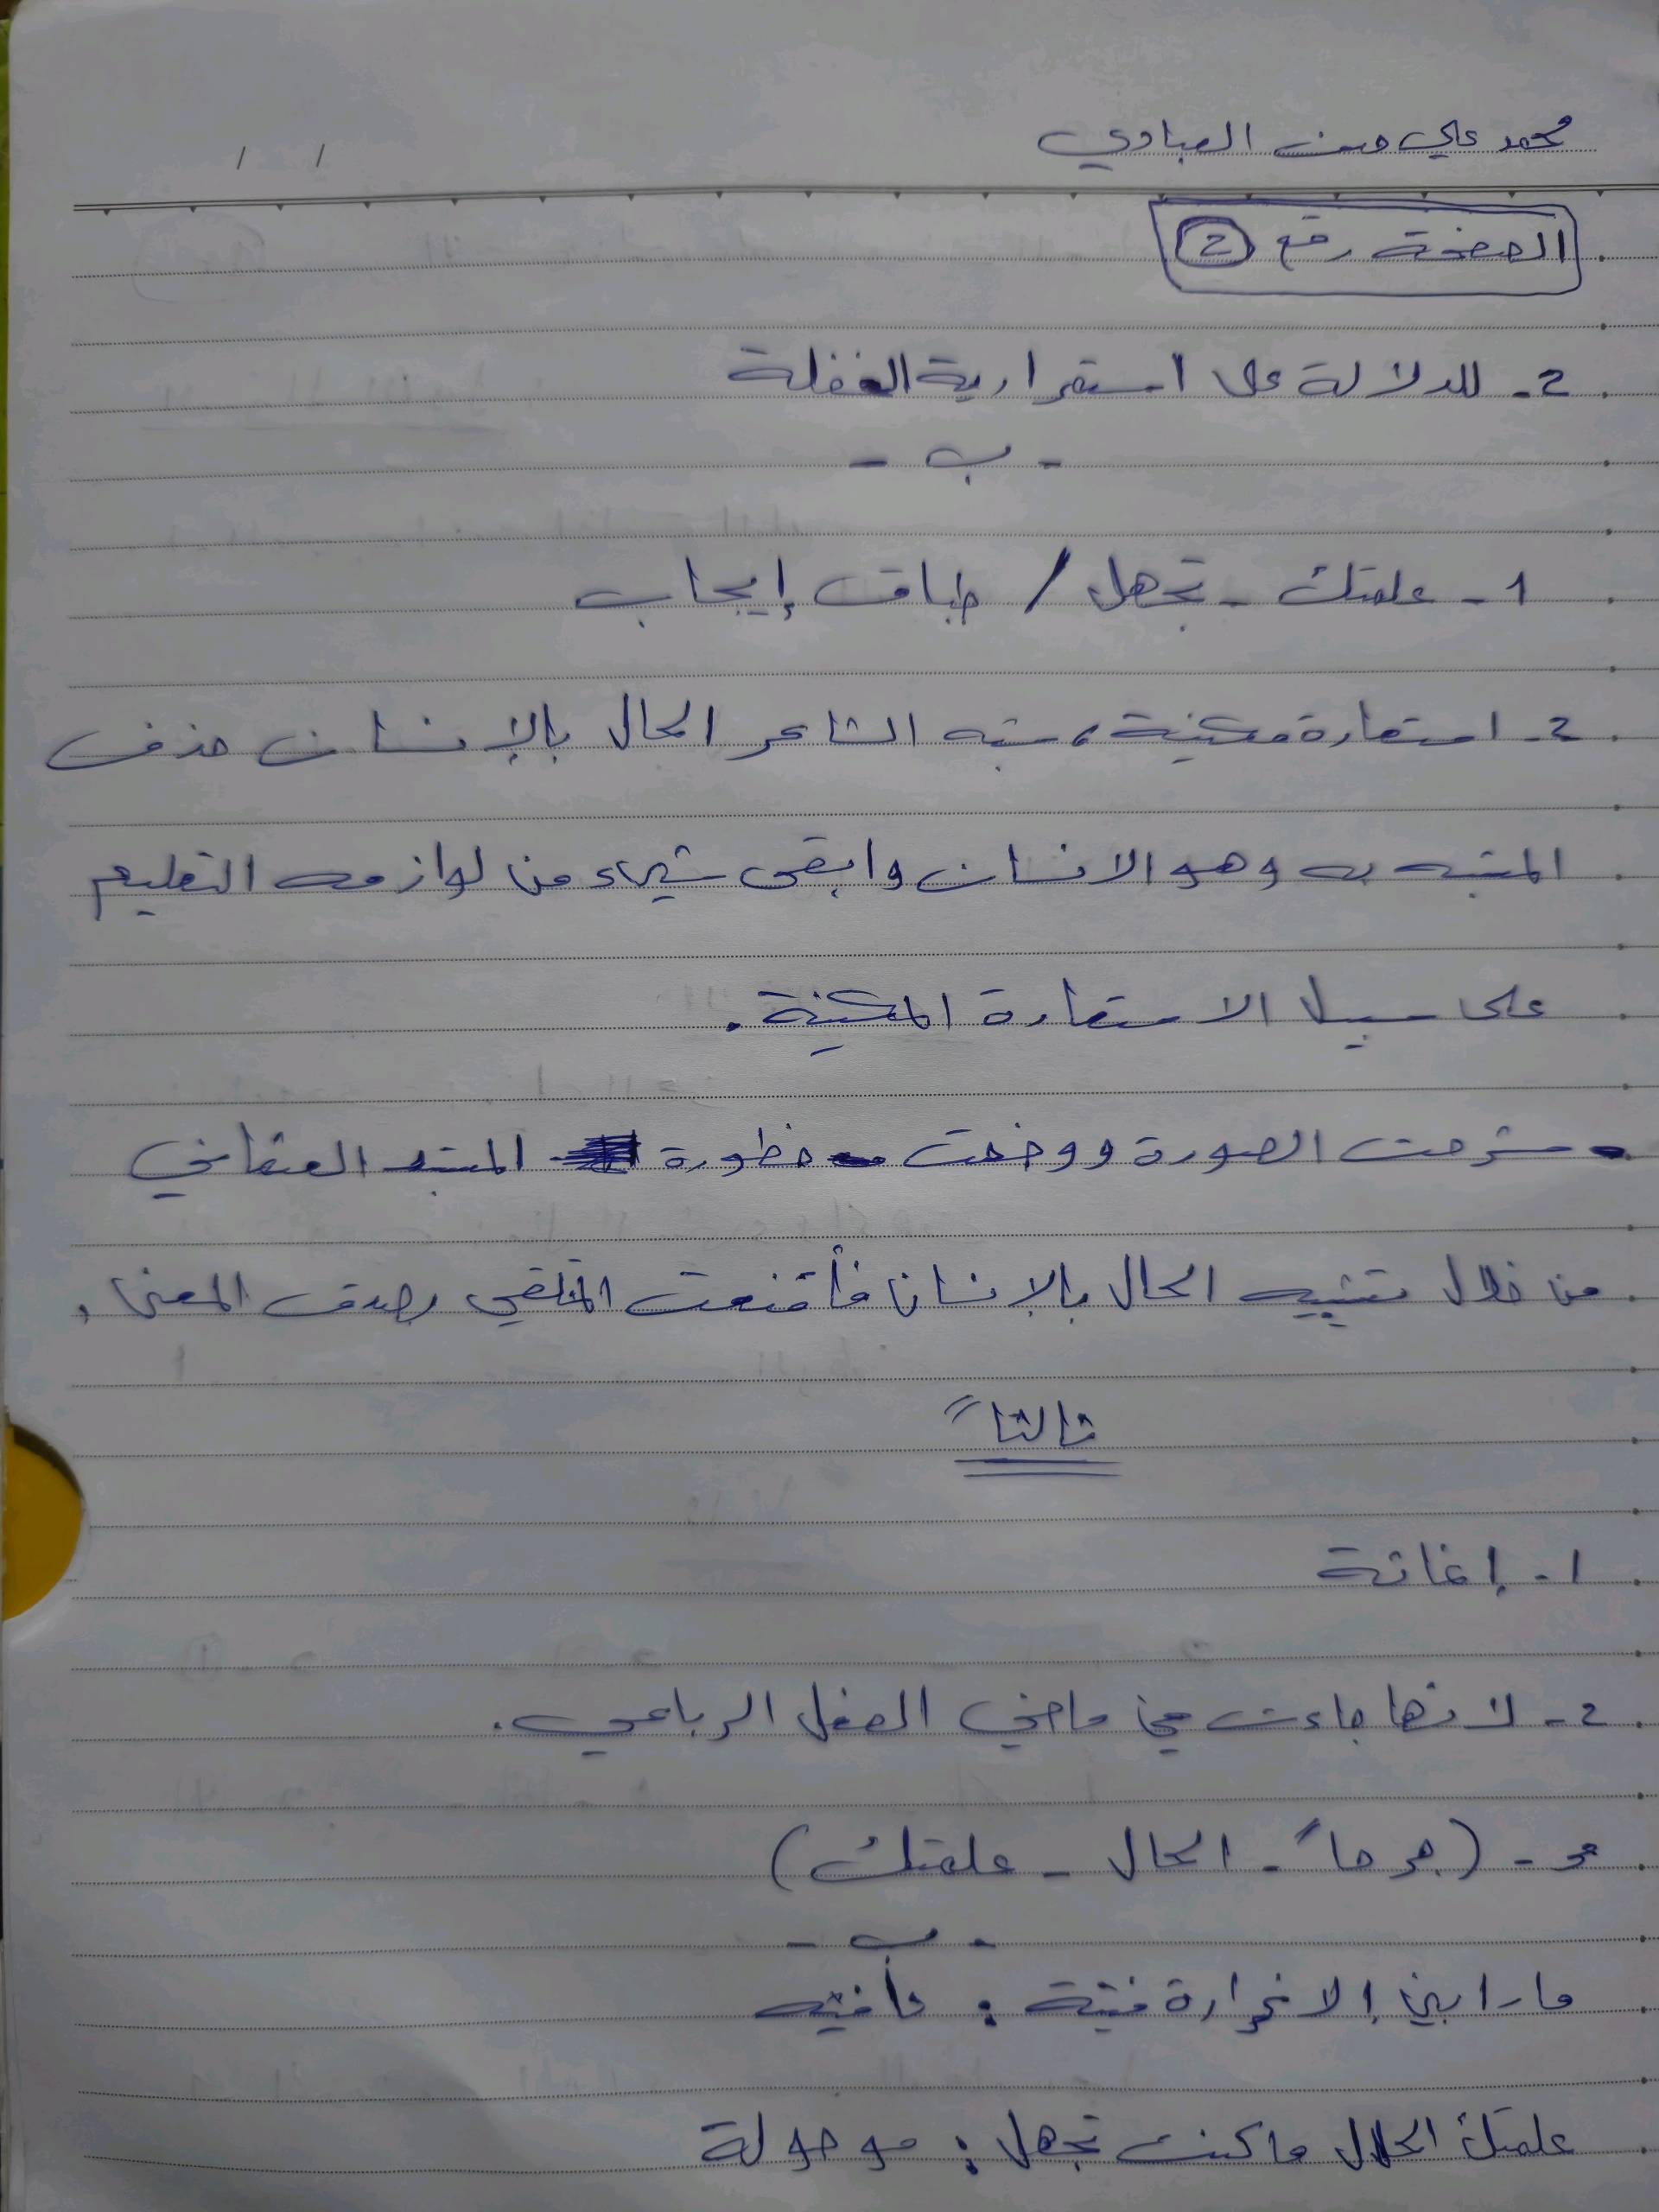 محمد علي حسن العبادي
/ /
الصفحة رقم 2
2- للدلالة على استمرارية الغفلة
- ب -
1- علمتك - تجهل / طباق إيجاب
2- استعارة مكنية، شبه الشاعر الحال بالإنسان حذف
المشبه به وهو الانسان وابقى شيء من لوازمه التعليم
على سبيل الاستعارة المكنية.
شرحت الصورة ووضحت خطورة المستبد العثماني
من خلال تشبيه الحال بالإنسان فأقنعت المتلقي بصدق المعنى.
ثالثاً
1- إغاثة
2- لانها جاءت في ماضي الفعل الرباعي.
3- (جرحاً - الحال - علمتك)
- ب -
ما رابني إلا غرارة فتية : نافية
علمتك الحال ما كنت تجهل : موصولة